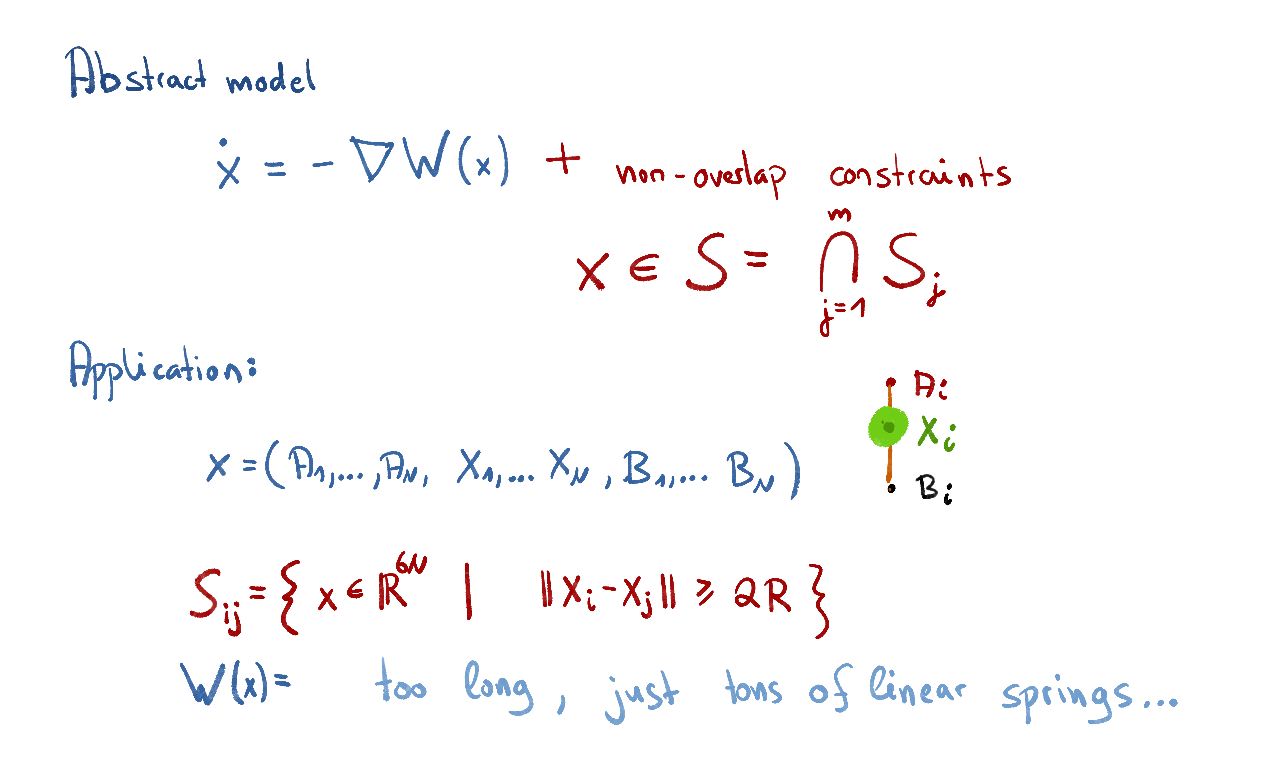 Abstract model
ẋ = - ∇W(x) + non-overlap constraints
x ∈ S = ⋂_{j=1}^{m} S_j
Application:
A_i
X_i
B_i
x = (A_1,...,A_N, X_1,... X_N, B_1,... B_N)
S_ij = { x ∈ ℝ^{6N} | ||X_i - X_j|| ≥ 2R }
W(x) = too long, just tons of linear springs...